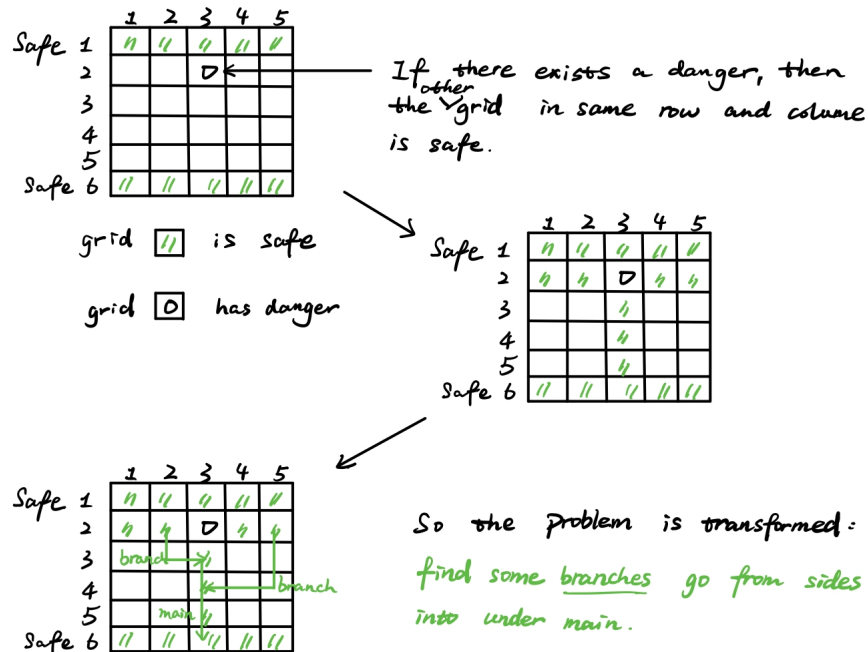 1 2 3 4 5
Safe 1
2
3
4
5
Safe 6
If there exists a danger, then
the other grid in same row and colume
is safe.
grid is safe
grid has danger
1 2 3 4 5
Safe 1
2
3
4
5
Safe 6
1 2 3 4 5
Safe 1
2
3 branch
4 branch
5 main
Safe 6
So the problem is transformed:
find some branches go from sides
into under main.